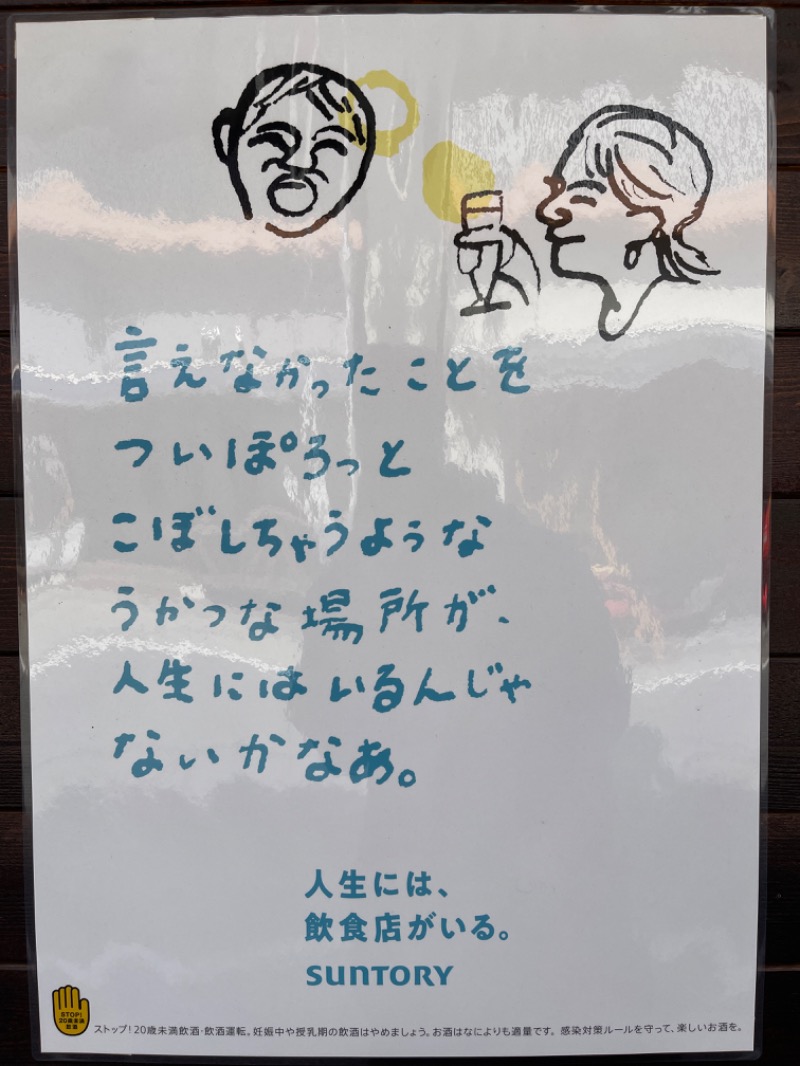 言えなかったことを
ついぽろっと
こぼしちゃうような
うかつな場所が、
人生にはいるんじゃ
ないかなあ。
人生には、
飲食店がいる。
SUNTORY
STOP!
20歳未満
飲酒
ストップ!20歳未満飲酒・飲酒運転。妊娠中や授乳期の飲酒はやめましょう。お酒はなによりも適量です。感染対策ルールを守って、楽しいお酒を。